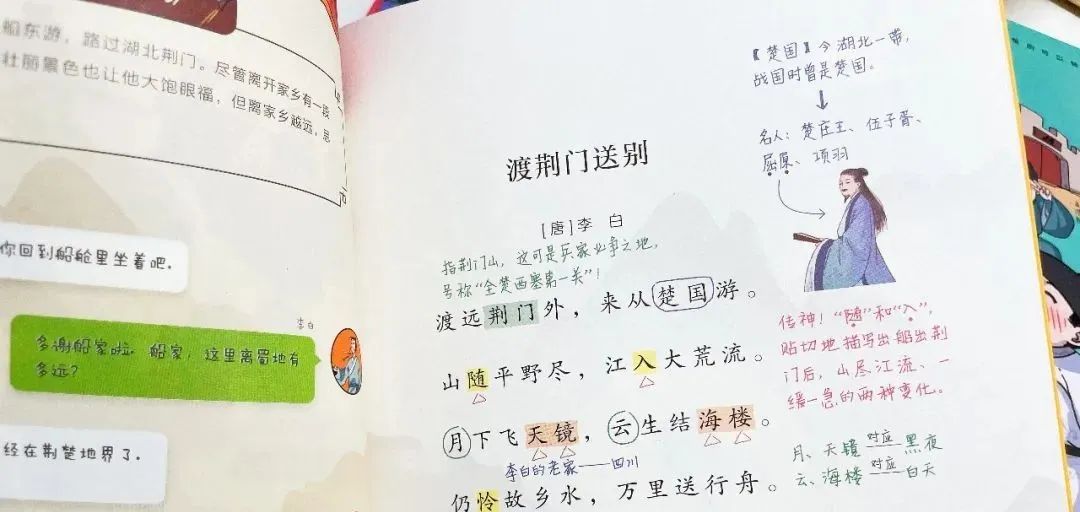 船东游，路过湖北荆门。尽管离开家乡有一段
壮丽景色也让他大饱眼福，但离家乡越远，思
你回到船舱里坐着吧。
李白
多谢船家啦。船家，这里离眉地有
多远？
经在荆楚地界了。
渡荆门送别
[唐]李 白
指荆门山，这可是兵家必争之地，
号称“全楚西塞第一关”！
渡远荆门外，来从楚国游。
山随平野尽，江入大荒流。
月下飞天镜，云生结海楼。
李白的老家——四川
仍怜故乡水，万里送行舟。
【楚国】今湖北一带，
战国时曾是楚国。
名人：楚庄王、伍子胥、
屈原、项羽
传神！“随”和“入”，
贴切地描写出船出荆
门后，山尽江流、一
缓一急的两种变化。
月、天镜 对应 黑夜
云、海楼 对应 白天